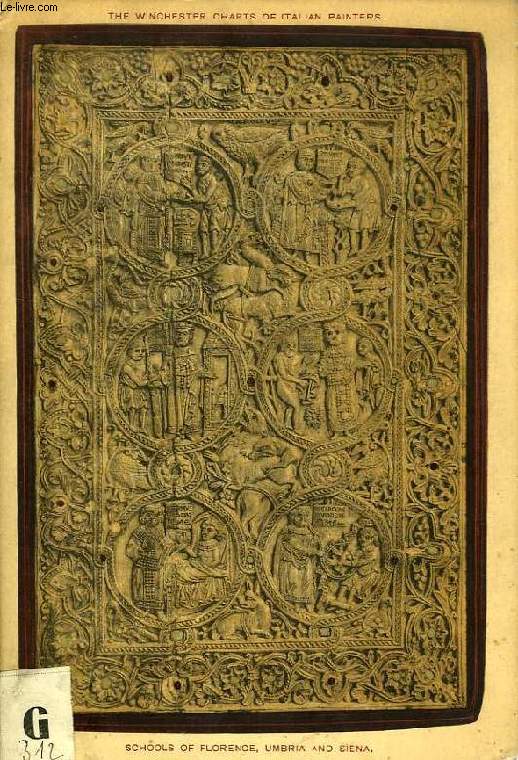 Le-livre.com
THE WINCHESTER CHARTS OF ITALIAN PAINTERS
G
312
SCHOOLS OF FLORENCE, UMBRIA AND SIENA.